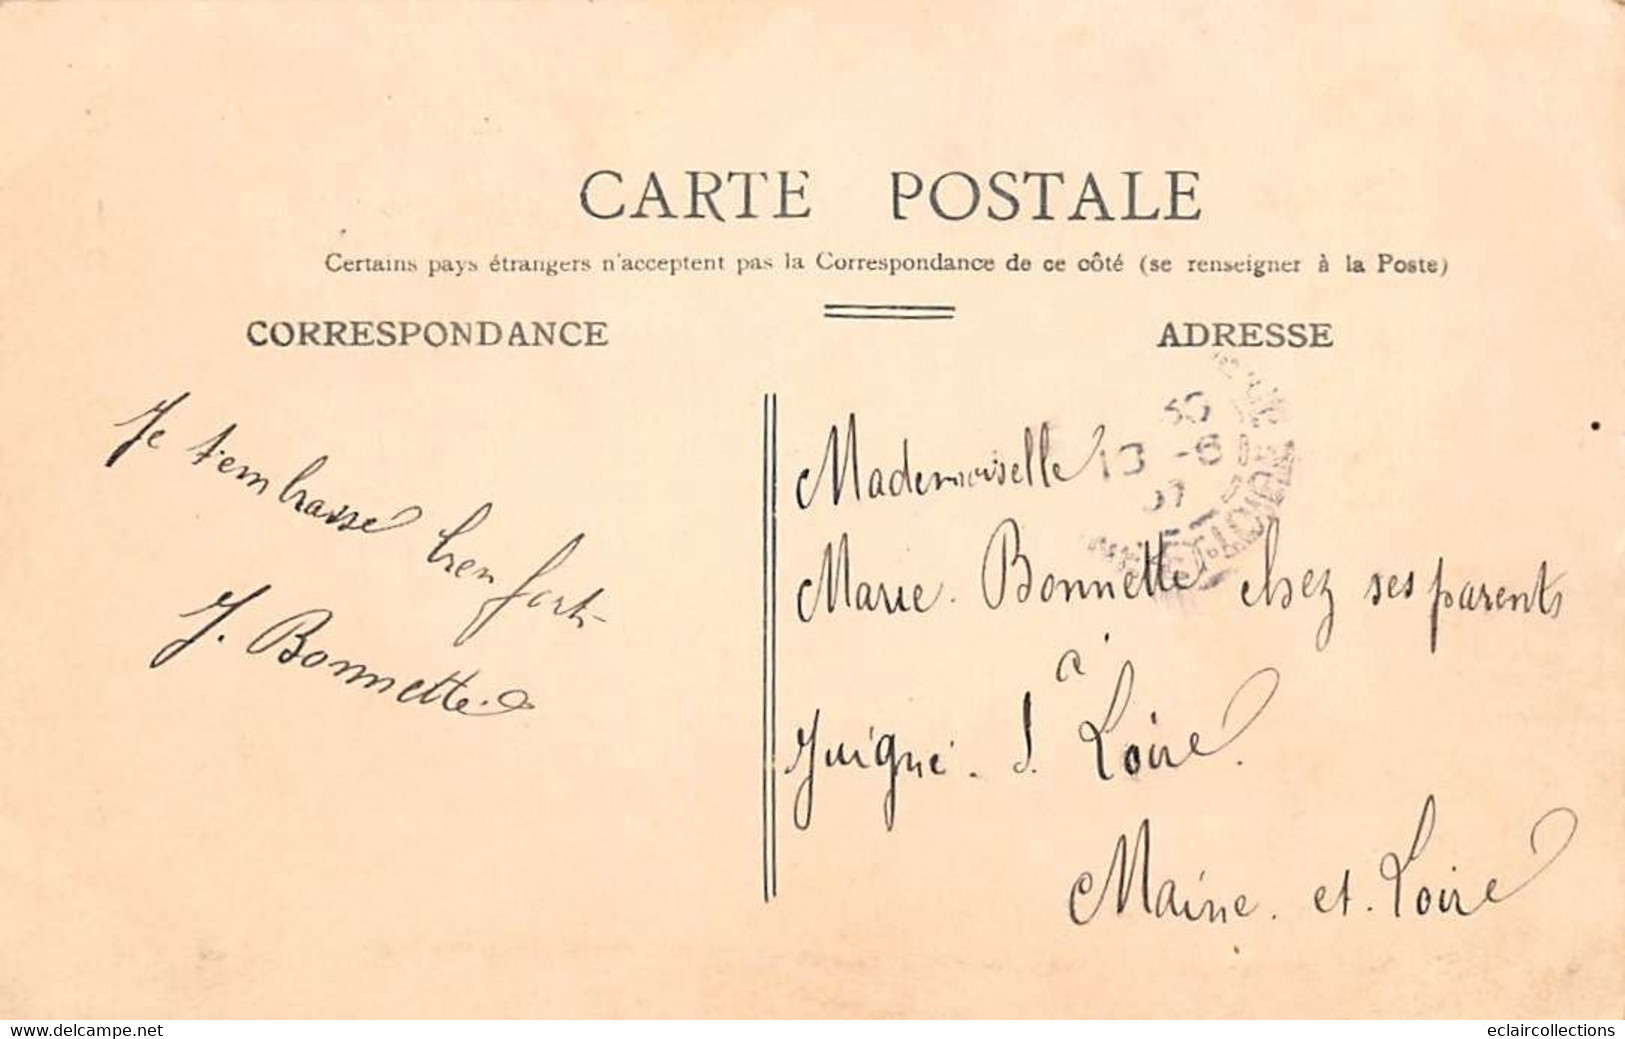 CARTE POSTALE
Certains pays étrangers n'acceptent pas la Correspondance de ce côté (se renseigner à la Poste)
CORRESPONDANCE
Je t'embrasse bien fort
J. Bonnette
ADRESSE
Mademoiselle
Marie Bonnette chez ses parents
à
Juigné. S. Loire.
Maine. et. Loire
13 -6
07
LOIRE
www.delcampe.net
eclaircollections